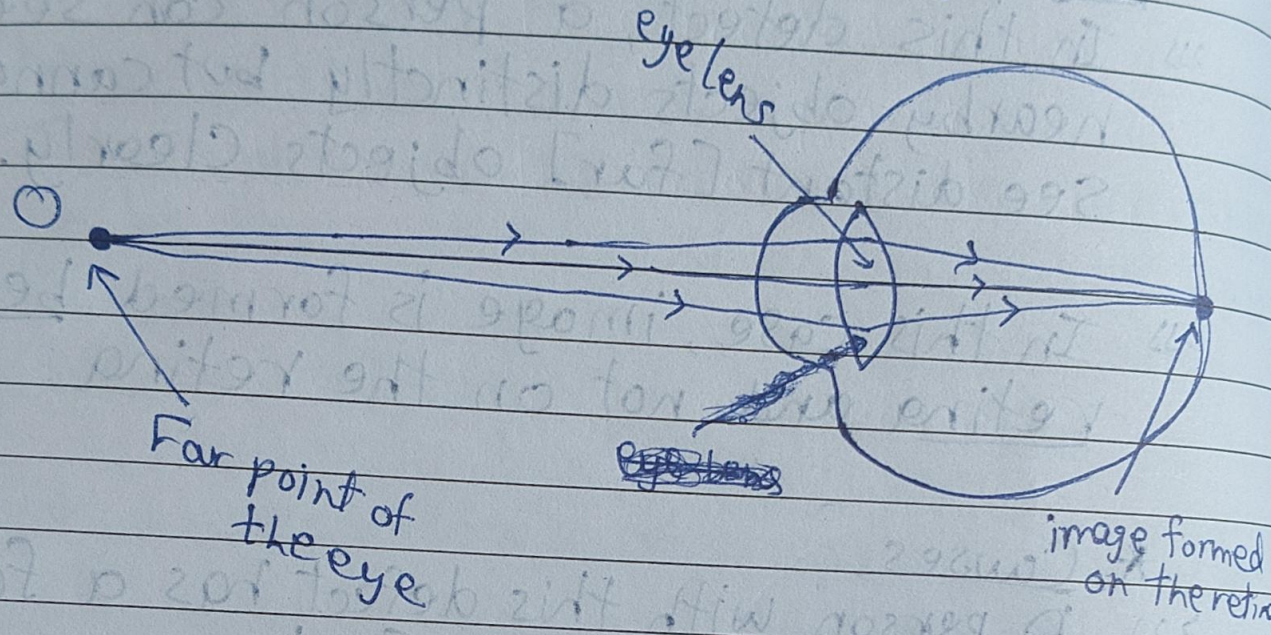 eye lens
O
Far point of
the eye
image formed
on the retin